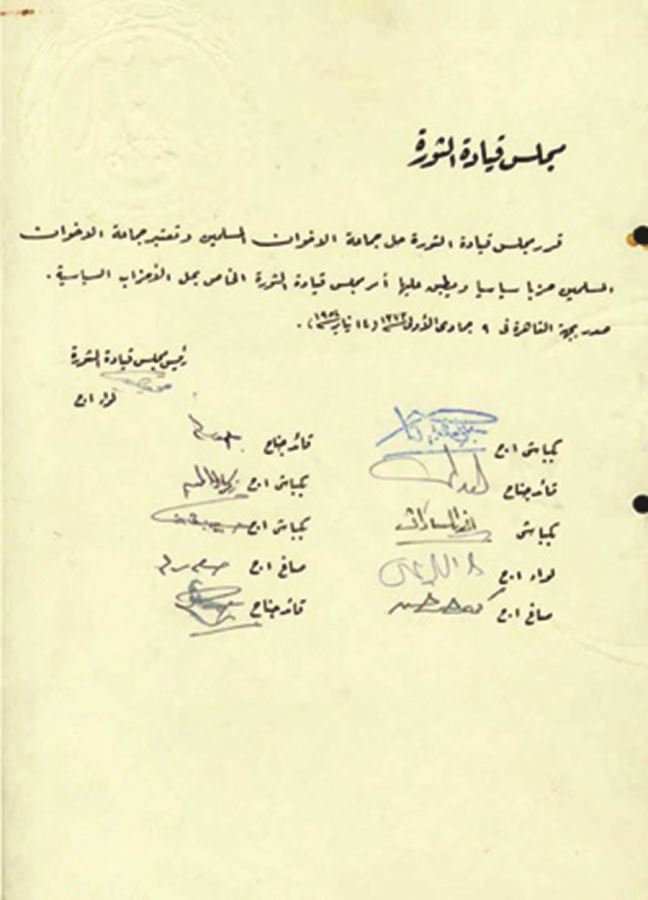 مجلس قيادة الثورة
قرر مجلس قيادة الثورة حل جماعة الاخوان المسلمين وتعتبر جماعة الاخوان
المسلمين حزبا سياسيا ويطبق عليها أمر مجلس قيادة الثورة الخاص بحل الأحزاب السياسية .
صدر بجهة القاهرة فى ٩ جمادى الأولى سنة ١٣٧٣ (١٤ يناير سنة ١٩٥٤) .
رئيس مجلس قيادة الثورة
لواء ا.ح
بكباشى ا.ح
قائد جناح
قائد جناح
بكباشى ا.ح زكريا
بكباشى أنور السادات
بكباشى ا.ح
لواء ا.ح
صاغ ا.ح
صاغ ا.ح
قائد جناح